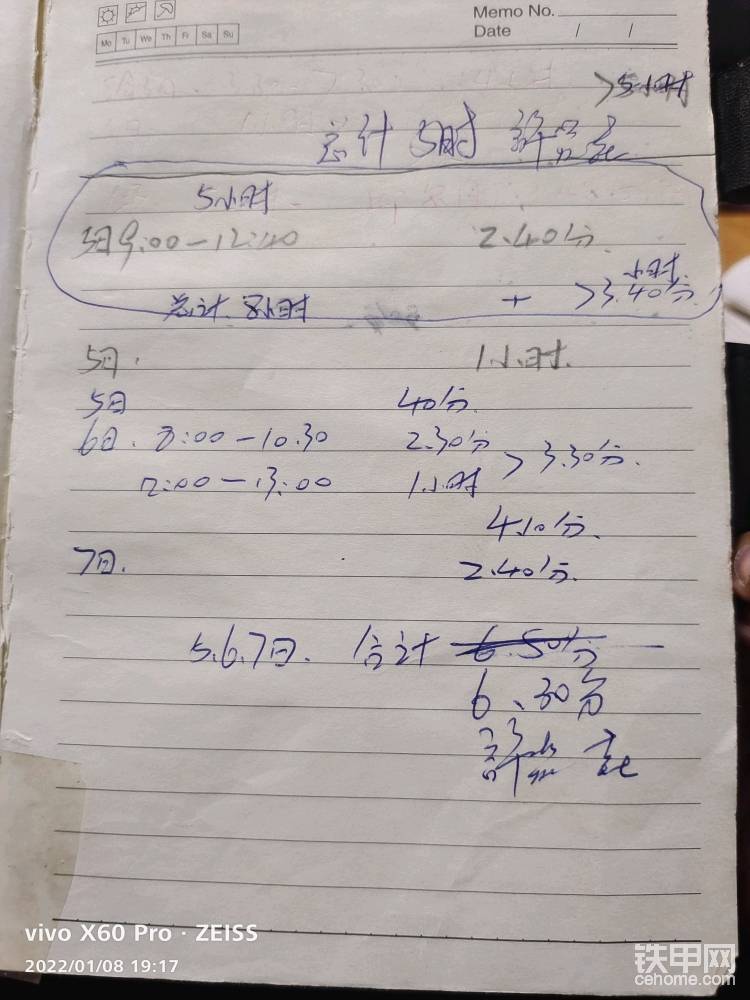 Memo No.
Mo Tu We Th Fr Sa Su
Date / /
>5小时
总计 5时
5小时
5日9:00-12:40 2.40分
小时
总计 + >3.40分
5日. 1小时.
5日 40分.
6日. 8:00-10.30 2.30分
12:00-13:00 1小时 > 3.30分.
4.10分.
7日. 2.40分.
5.6.7日. 合计 6.50分
6、30分
vivo X60 Pro · ZEISS
2022/01/08 19:17
铁甲网
cehome.com